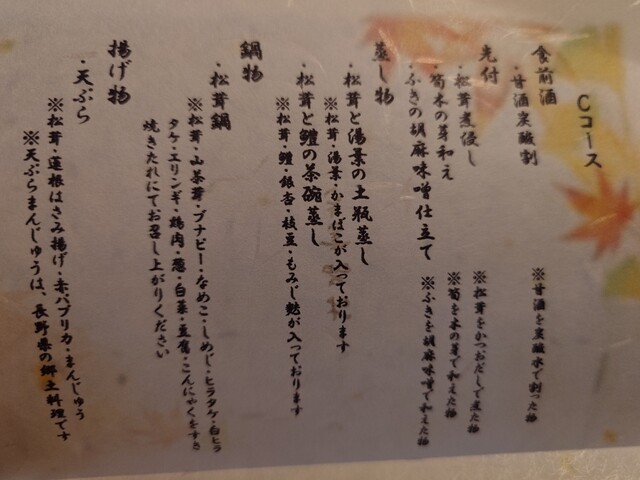 Cコース
食前酒
・甘酒炭酸割
※甘酒を炭酸水で割った物
先付
・松茸煮浸し
※松茸をかつおだしで煮た物
・筍木の芽和え
※筍を木の芽で和えた物
・ふきの胡麻味噌仕立て
※ふきを胡麻味噌で和えた物
蒸し物
・松茸と湯葉の土瓶蒸し
※松茸・湯葉・かまぼこが入っております
・松茸と鱧の茶碗蒸し
※松茸・鱧・銀杏・枝豆・もみじ麩が入っております
鍋物
・松茸鍋
※松茸・山茶茸・ブナピー・なめこ・しめじ・ヒラタケ・白ヒラ
タケ・エリンギ・鶏肉・葱・白菜・豆腐・こんにゃくをすき
焼きたれにてお召し上がりください
揚げ物
・天ぷら
※松茸・蓮根はさみ揚げ・赤パプリカ・まんじゅう
※天ぷらまんじゅうは、長野県の郷土料理です